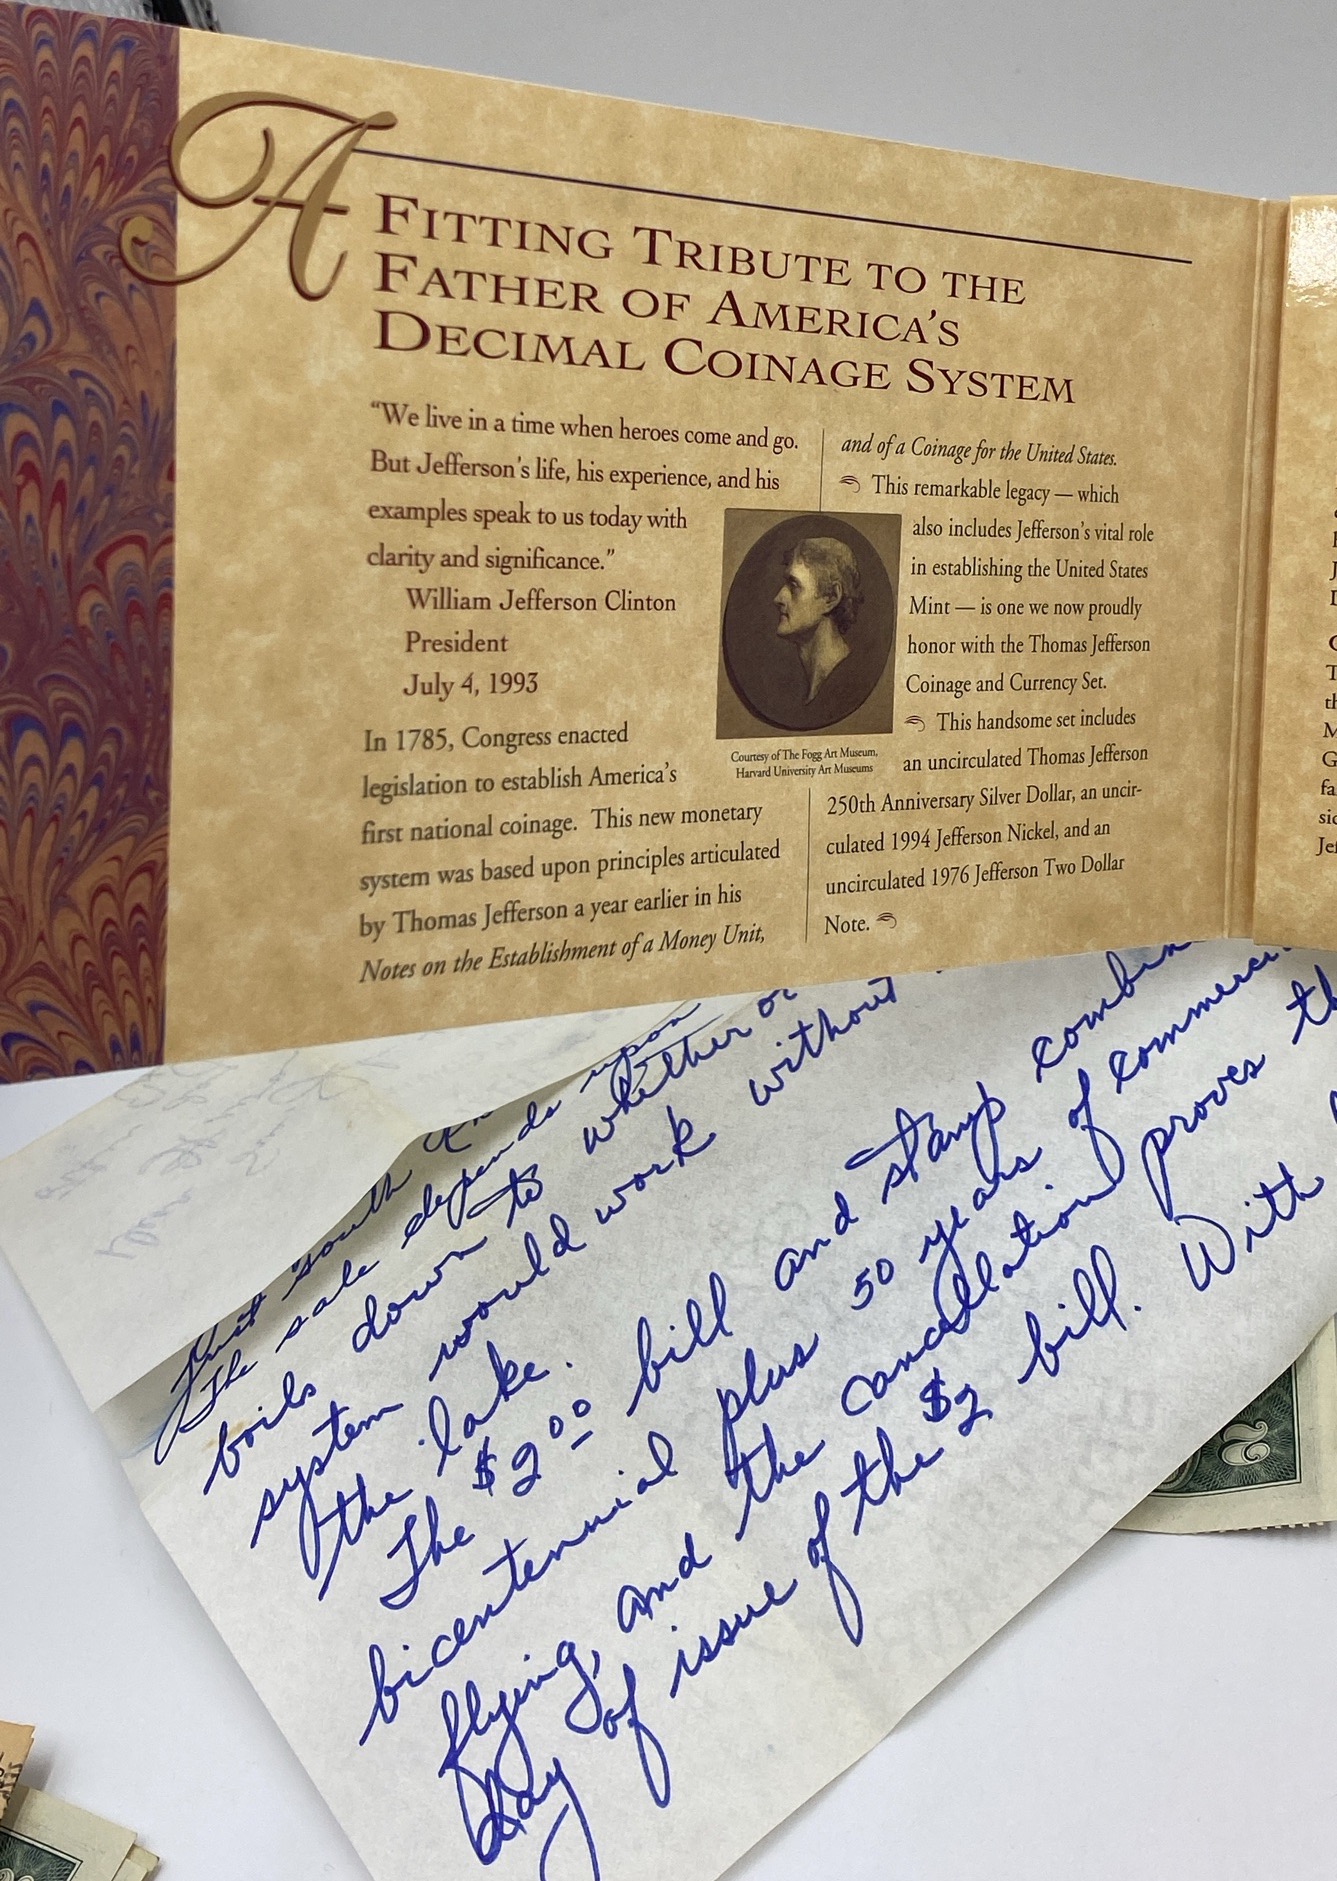 A FITTING TRIBUTE TO THE
FATHER OF AMERICA'S
DECIMAL COINAGE SYSTEM
"We live in a time when heroes come and go.
But Jefferson's life, his experience, and his
examples speak to us today with
clarity and significance."
William Jefferson Clinton
President
July 4, 1993
In 1785, Congress enacted
legislation to establish America's
first national coinage. This new monetary
system was based upon principles articulated
by Thomas Jefferson a year earlier in his
Notes on the Establishment of a Money Unit,
and of a Coinage for the United States.
This remarkable legacy — which
also includes Jefferson's vital role
in establishing the United States
Mint — is one we now proudly
honor with the Thomas Jefferson
Coinage and Currency Set.
This handsome set includes
an uncirculated Thomas Jefferson
250th Anniversary Silver Dollar, an uncir-
culated 1994 Jefferson Nickel, and an
uncirculated 1976 Jefferson Two Dollar
Note.
Courtesy of The Fogg Art Museum,
Harvard University Art Museums
south
The sale depends upon
boils down to whether or
system would work without
the lake.
The $2.00 bill and stamp
bicentennial plus 50 years of
flying, and the cancellation proves
day of issue of the $2 bill. With
2